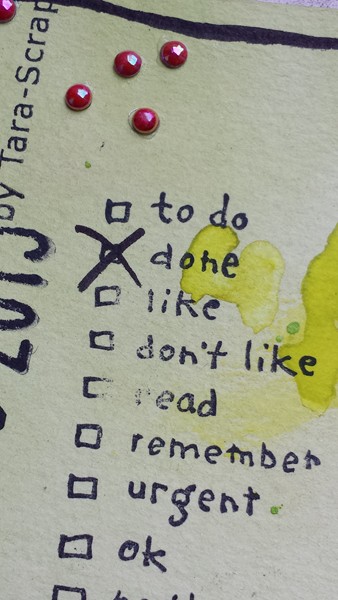 by Tara-Scrap
2015
to do
done
like
don't like
read
remember
urgent
ok